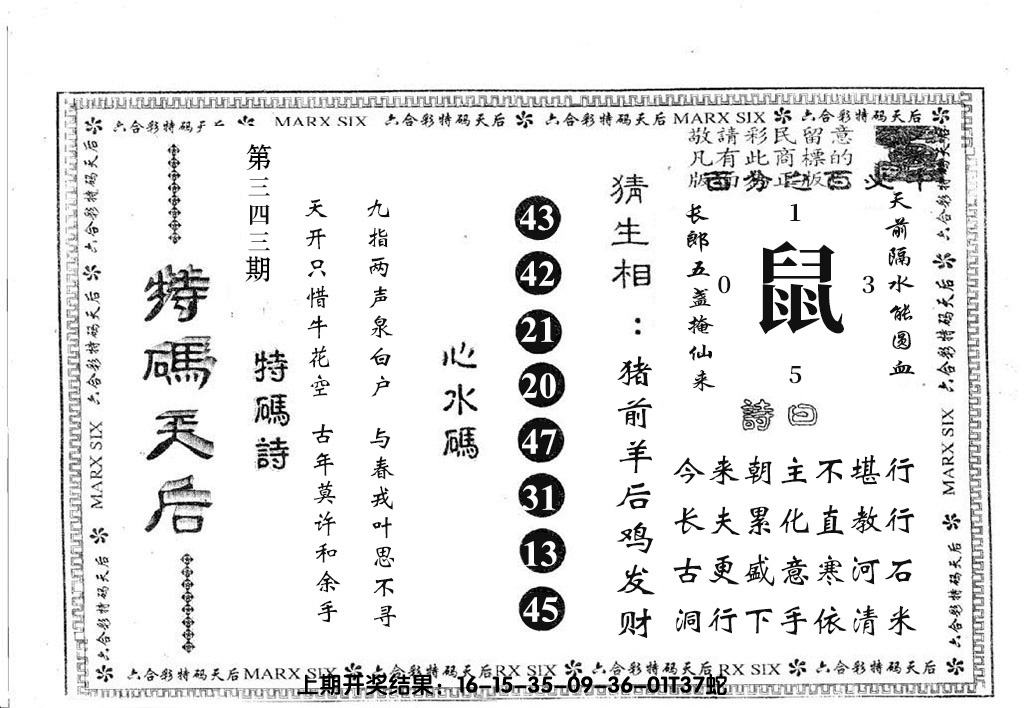 六合彩特码天后 MARX SIX 六合彩特码天后 六合彩特码天后 MARX SIX 六合彩特码天后
敬請彩民留意
凡有此商標的
版面为正版
第三四三期
特碼天后
特碼詩
九指两声泉白户 与春戎叶思不寻
天开只惜牛花空 古年莫许和余手
心水碼
43
42
21
20
47
31
13
45
猜生相：猪前羊后鸡发财
天前隔水能圆血
长郎五盏掩仙来
1
0
鼠
3
5
詩曰
今来朝主不堪行
长夫累化直教行
古更盛意寒河石
洞行下手依清米
六合彩特码天后
六合彩特码天后
MARX SIX
六合彩特码天后
六合彩特码天后
六合彩特码天后
MARX SIX
六合彩特码天后
六合彩特码天后 MARX SIX 六合彩特码天后 RX SIX 六合彩特码天后 RX SIX 六合彩特码天后
上期开奖结果：16-15-35-09-36-01T37蛇